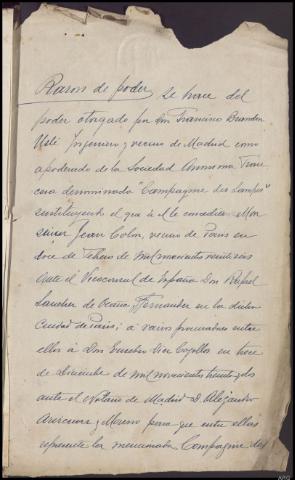 Razon de poder, se hace del
poder otorgado por Don Francisco Brandon
Usté Ingeniero y vecino de Madrid como
apoderado de la Sociedad Anonoma Fran
cesa denominada "Compagnie des Lampes"
sustituyendo el que á él le concediera Mon
sieur Jean Colon, vecino de Paris en
doce de Febrero de mil novecientos veintiseis
ante el Viceconsul de España Don Rafael
Sanchez de Ocaña y Fernandez en la dicha
Ciudad de Paris; á varios procuradores entre
ellos á Don Eusebio Ruiz Cogollos en trece
de Diciembre de mil novecientos treinta y dos
ante el Notario de Madrid D. Alejandro
Arizcun y Moreno para que entre ellas
represente la mencionada Compagnie des